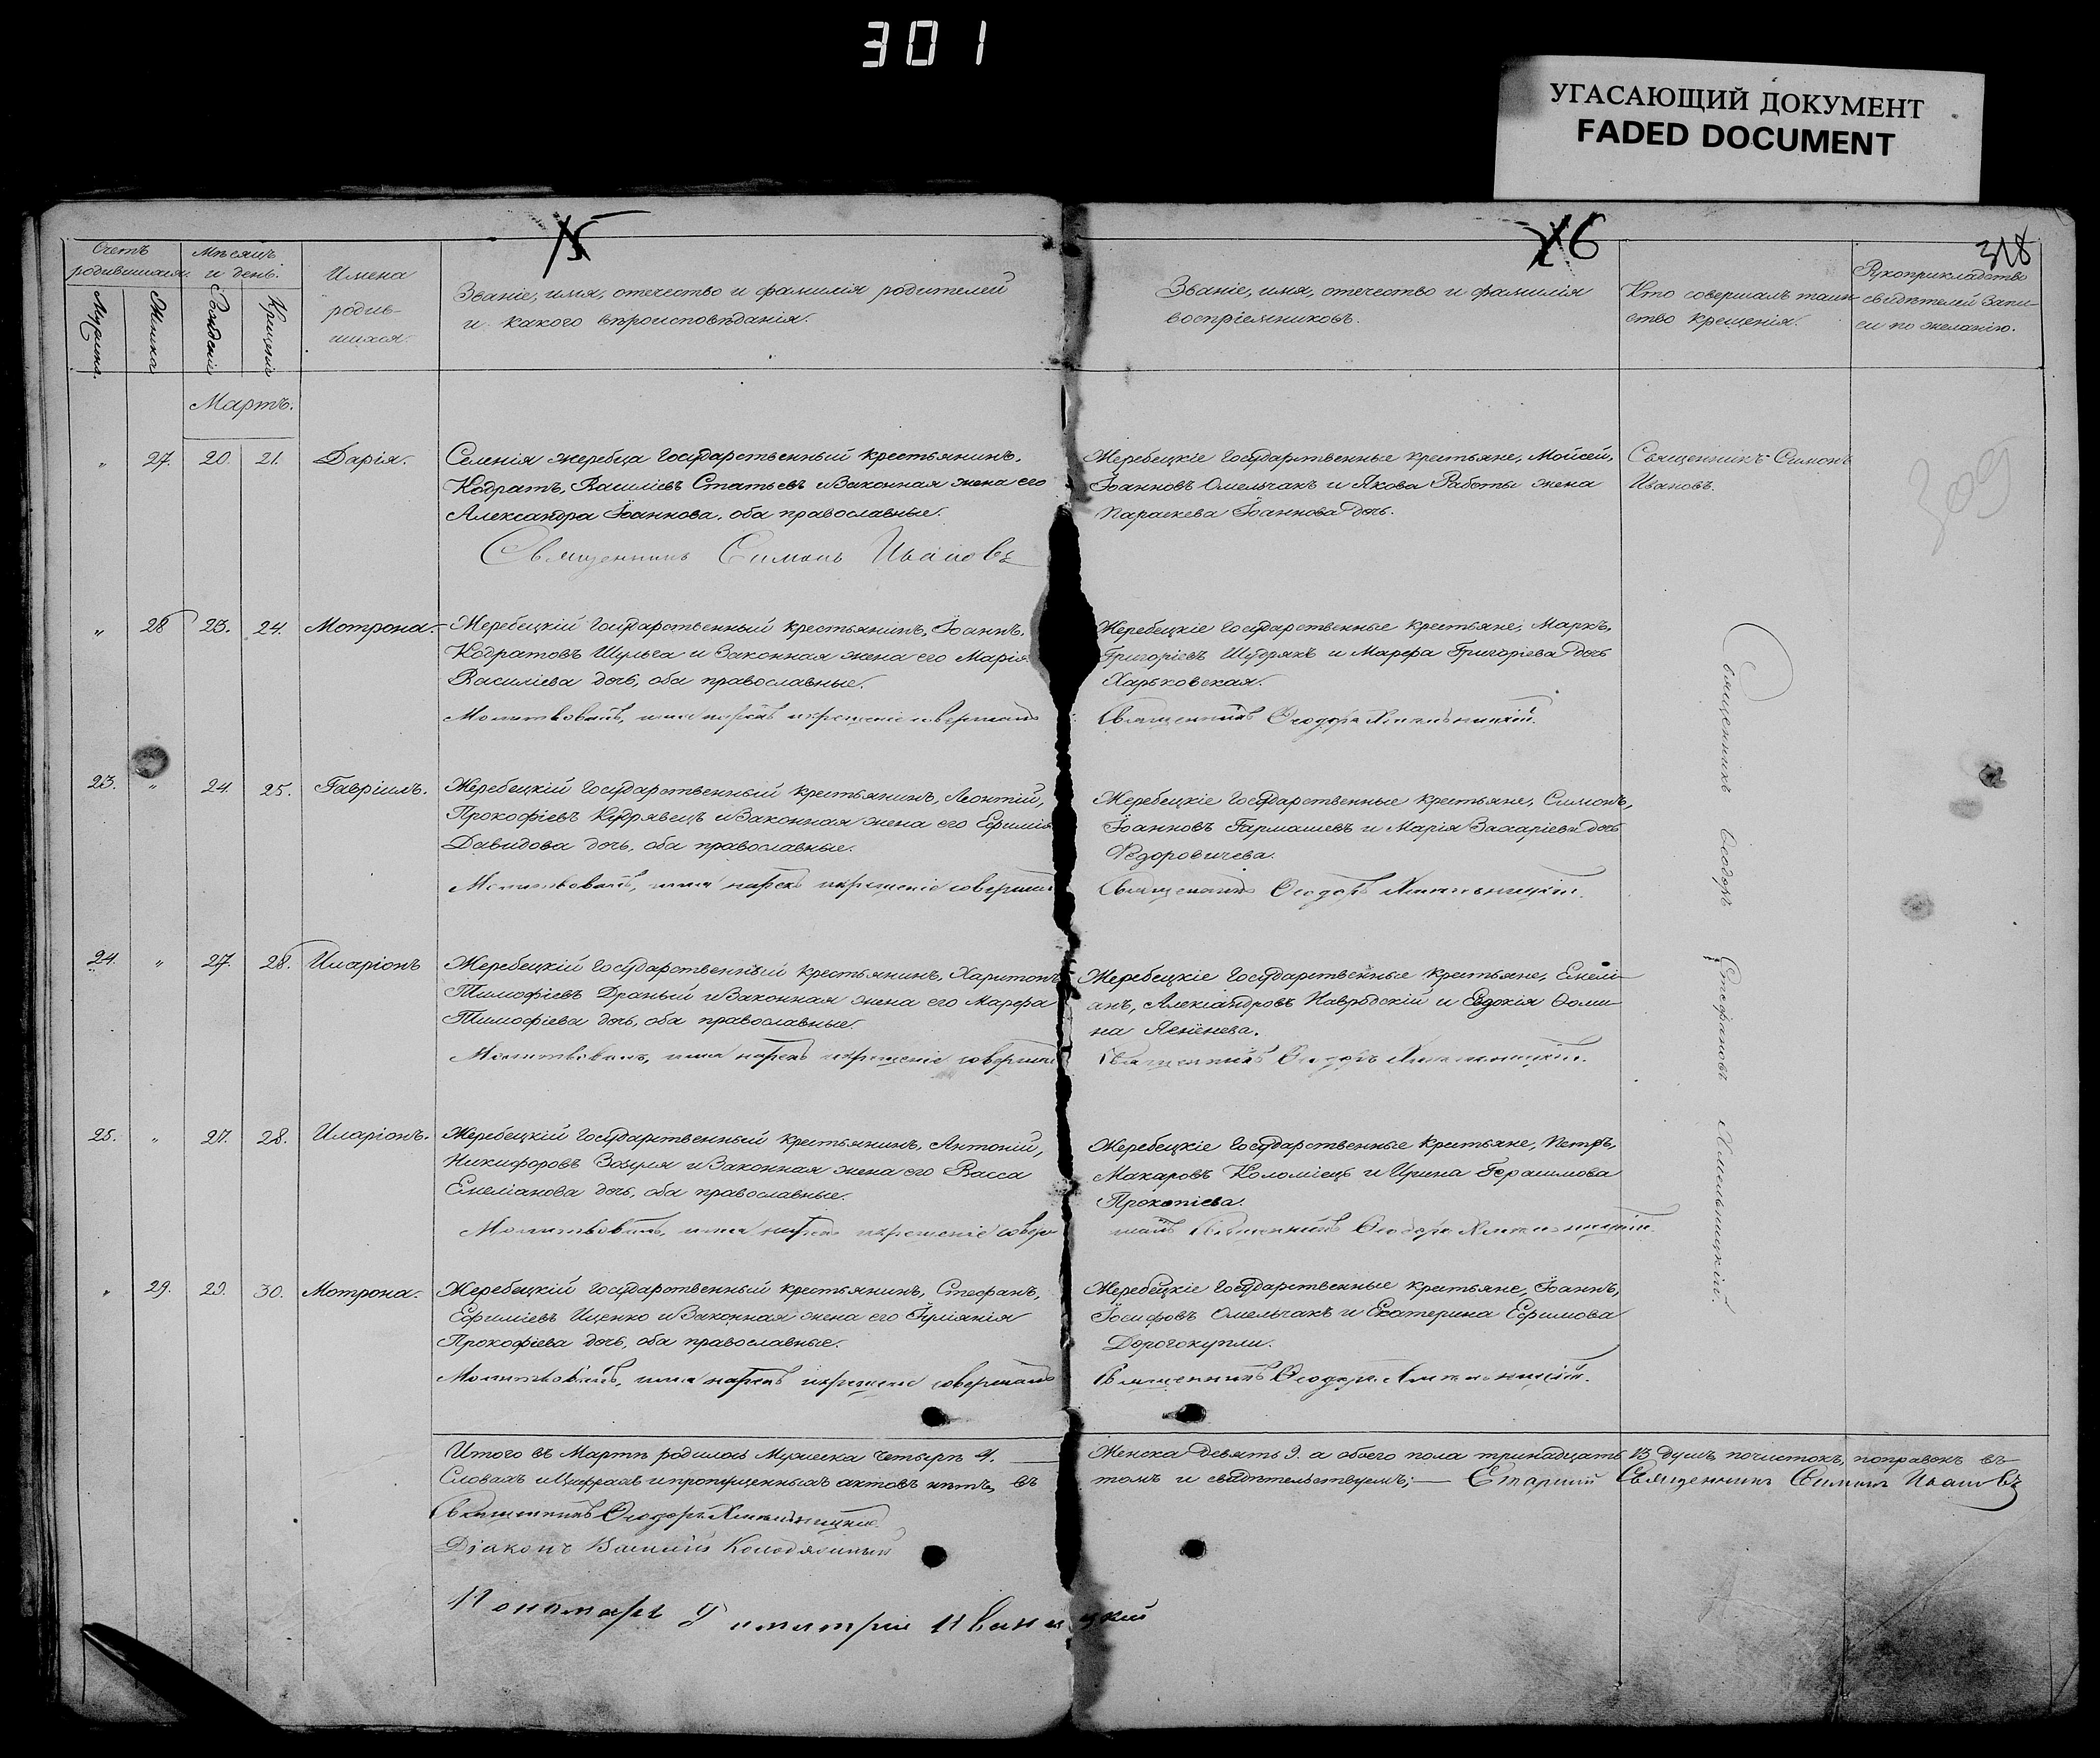 301
УГАСАЮЩИЙ ДОКУМЕНТ
FADED DOCUMENT
15
16
318
Счетъ родившихся.
Мужеска.
Женска
Мѣсяцъ и день.
Рожденія
Крещенія
Имена родившихся.
Званіе, имя, отчество и фамилія родителей
и какого вѣроисповѣданія.
Званіе, имя, отчество и фамилія
воспріемниковъ.
Кто совершалъ таин-
ство крещенія.
Рукоприкладство
свидѣтелей запи-
си по желанію.
Мартъ.
„ 27. 20. 21. Дарія.
Селенія жеребца государственный крестьянинъ,
Кодратъ, Василіевъ Статьевъ и Законная жена его
Александра Іоаннова, оба православные.
Священникъ Симонъ Ивановъ
Жеребецкіе государственные крестьяне, Мойсей,
Іоанновъ Омельчакъ и Якова Работы жена
Параскева Іоаннова дочь.
Священникъ Симонъ
Ивановъ.
309
„ 28 23. 24. Мотрона.
Жеребецкій государственный крестьянинъ, Іоаннъ,
Кодратовъ Шульга и Законная жена его Марія
Василіева дочь, оба православные.
Молитвовалъ, имя нарекъ и крещеніе совершалъ
Жеребецкіе государственные крестьяне, Маркъ,
Григоріевъ Шудрякъ и Марфа Григоріева дочь
Харьковская.
Священникъ Ѳеодоръ Хмельницкій.
23. „ 24. 25. Гавріилъ.
Жеребецкій государственный крестьянинъ, Леонтій,
Прокофіевъ Кудрявецъ и Законная жена его Ефимія
Давидова дочь, оба православные.
Молитвовалъ, имя нарекъ и крещеніе совершалъ
Жеребецкіе государственные крестьяне, Симонъ,
Іоанновъ Гармашевъ и Марія Захаріева дочь
Ѳедоровичева.
Священникъ Ѳеодоръ Хмельницкій.
24. „ 27. 28. Иларіонъ
Жеребецкій государственный крестьянинъ, Харитонъ
Тимофіевъ Драный и Законная жена его Марфа
Тимофіева дочь, оба православные.
Молитвовалъ, имя нарекъ и крещеніе совершалъ
Жеребецкіе государственные крестьяне, Емели-
анъ, Александровъ Навродскій и Евдокія Ѳоми-
на
Священникъ Ѳеодоръ Хмельницкій.
25. „ 27. 28. Иларіонъ.
Жеребецкій государственный крестьянинъ, Антоній,
Никифоровъ Зозуля и Законная жена его Васса
Емеліанова дочь, оба православные.
Молитвовалъ, имя нарекъ и крещеніе совер
Жеребецкіе государственные крестьяне, Петръ,
Макаровъ Коломіецъ и Ирина Герасимова
Прокопіева.
шалъ Священникъ Ѳеодоръ Хмельницкій.
„ 29. 29. 30. Мотрона.
Жеребецкій государственный крестьянинъ, Стефанъ,
Ефиміевъ Ищенко и Законная жена его Іуліянія
Прокофіева дочь, оба православные.
Молитвовалъ, имя нарекъ и крещеніе совершалъ
Жеребецкіе государственные крестьяне, Іоаннъ,
Іосифовъ Омельчакъ и Екатерина Ефимова
Дорогокупли.
Священникъ Ѳеодоръ Хмельницкій.
Священникъ Ѳеодоръ Стефановъ Хмельницкій.
Итого въ Мартѣ родилось Мужеска четыре 4.
Женска девять 9. а обоего пола тринадцать 13 душъ почистокъ, поправокъ въ
Словахъ и Цифрахъ и пропущенныхъ актовъ нѣтъ, въ
томъ и свидѣтельствуемъ; Старший Священникъ Симонъ Ивановъ
Священникъ Ѳеодоръ Хмельницкій
Діаконъ Василій
Пономарь Димитрій